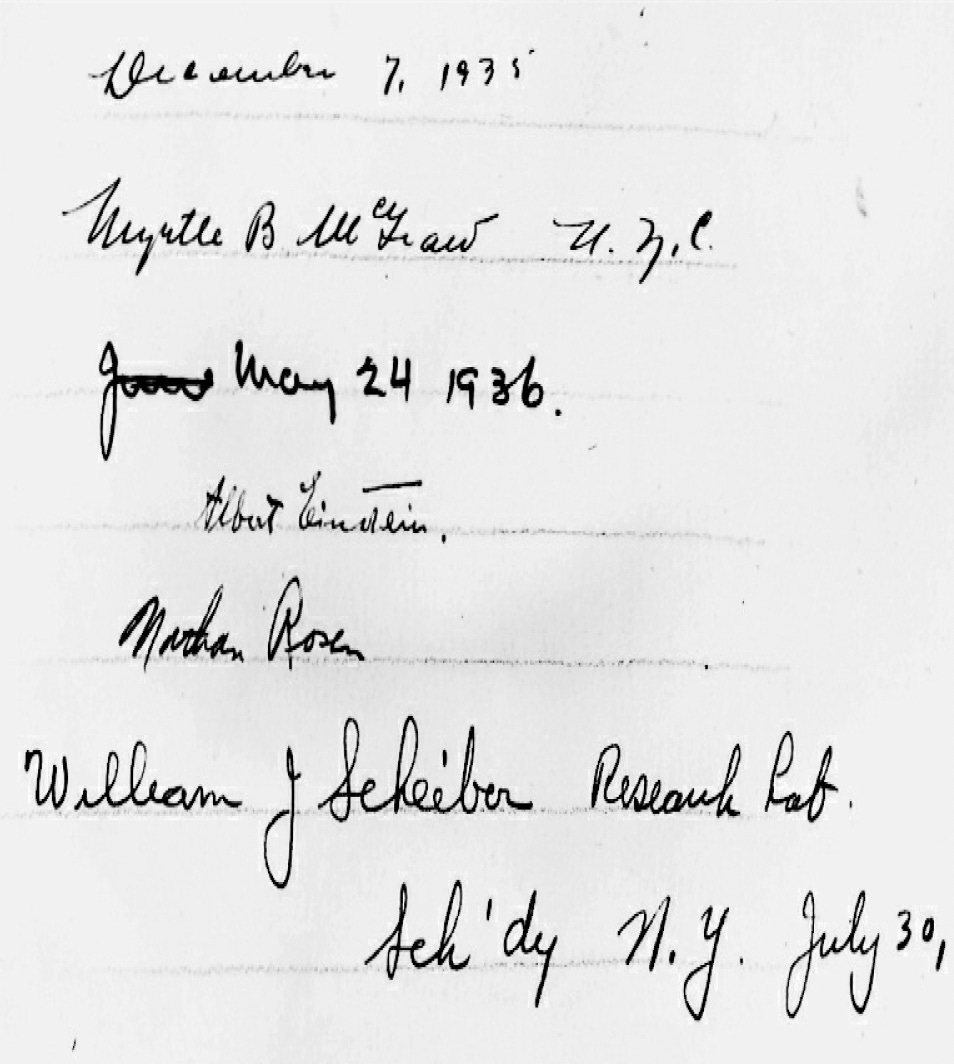 December 7, 1935
Myrtle B McGraw N. Y. C.
June May 24 1936.
Albert Einstein.
Nathan Rosen
William J Scheiber Research Lab.
Sch'dy N.Y. July 30,